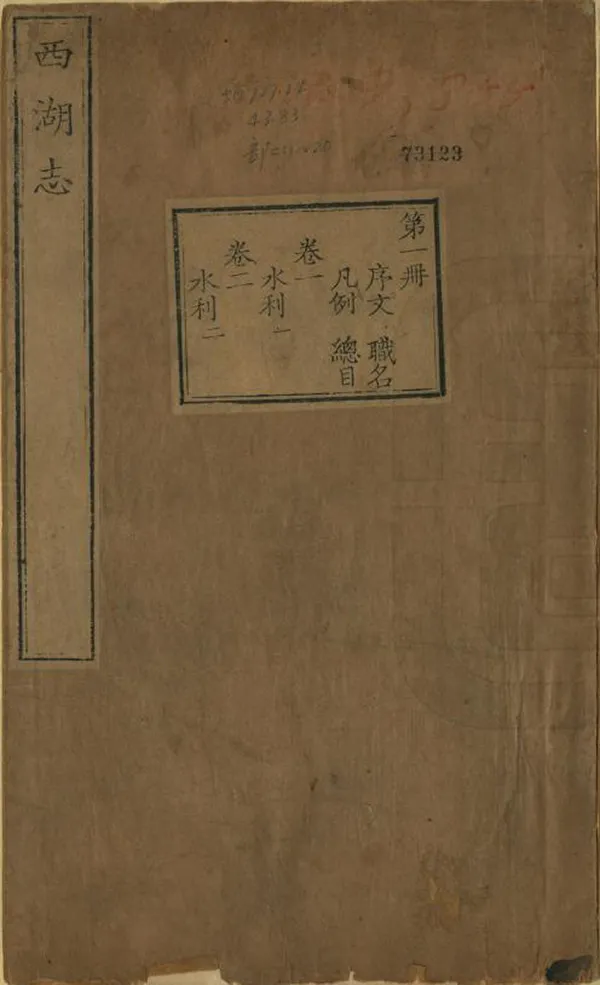 西湖志
73123
第一冊
序文 職名
凡例 總目
卷一
水利一
卷二
水利二